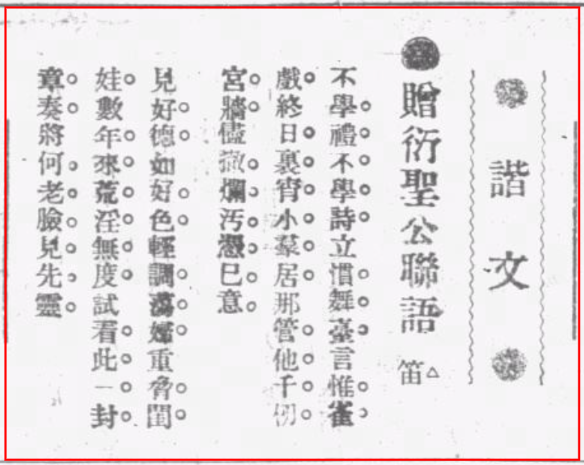 諧文
贈衍聖公聯語 笛
不學禮不學詩立慣舞臺言惟雀
戲終日裏宵小羣居那管他千仞
宮牆儘撒爛污憑已意
見好德如好色輕調蕩婦重脅閨
娃數年來荒淫無度試看此一封
章奏將何老臉見先靈